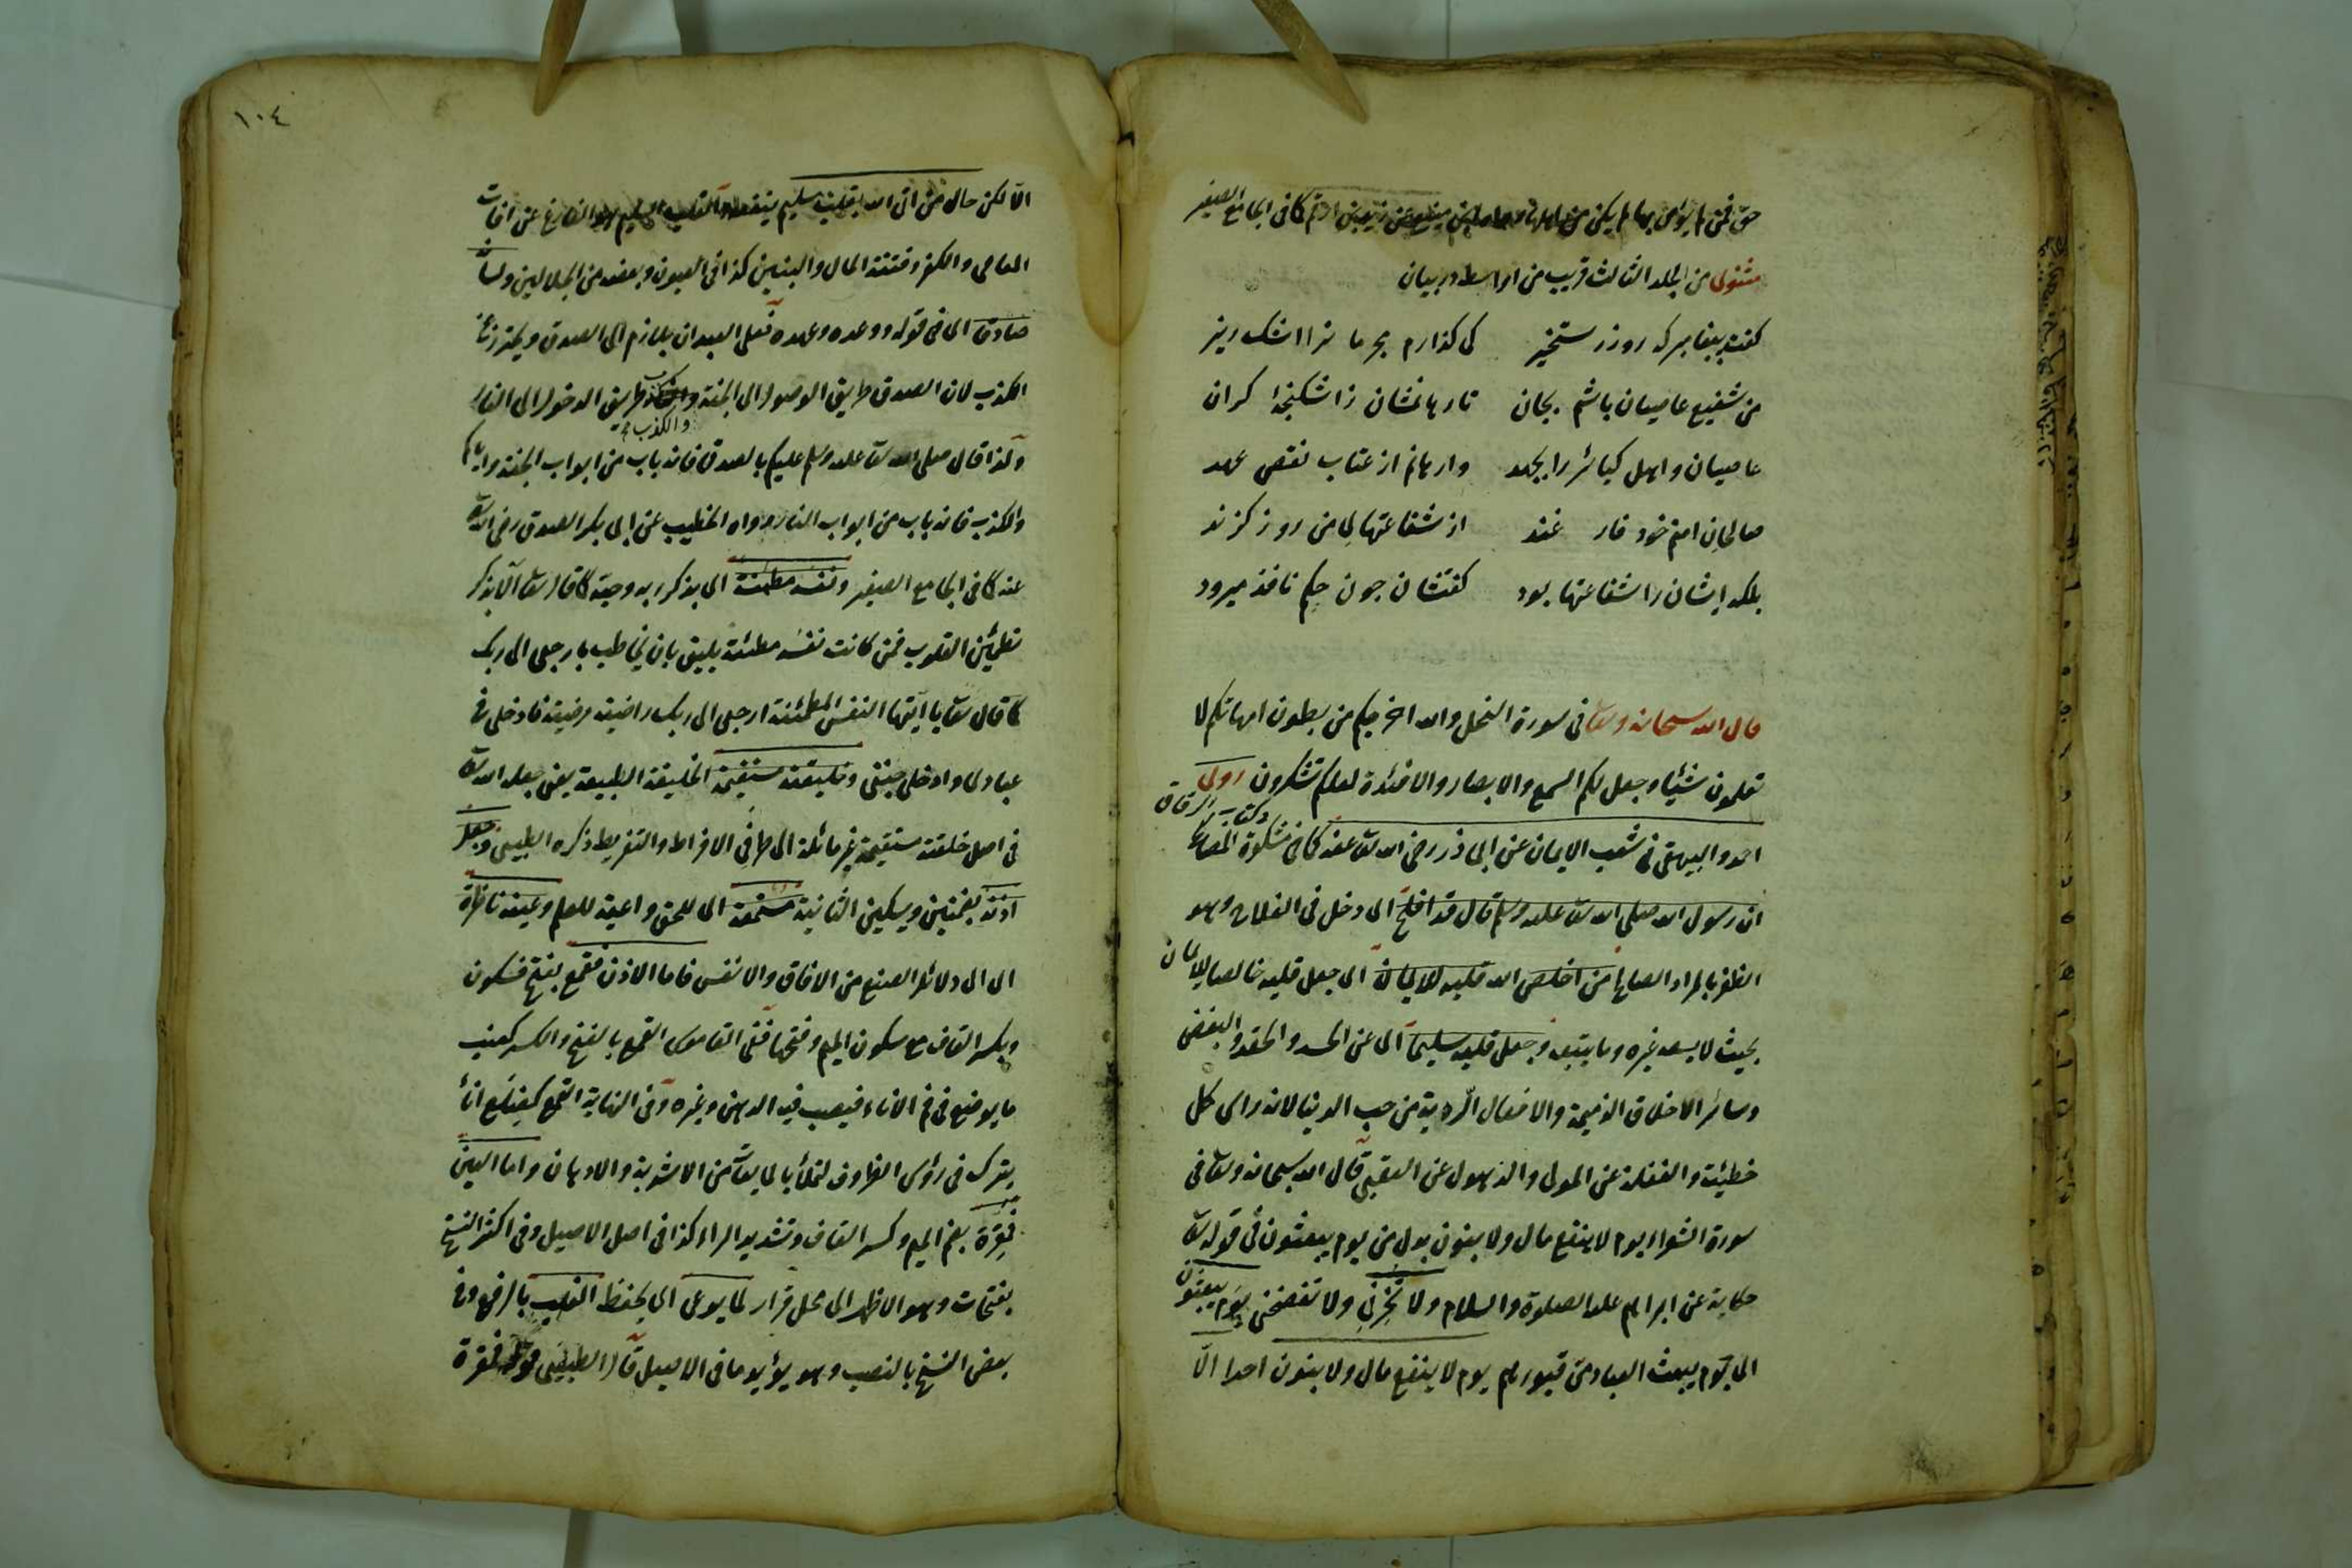 حق فمن لم يؤمن بها لم يكن من اهلها رواه ابن منيع عن زيد بن ارقم كما فى الجامع الصغير
مثنوى من الجلد الثالث قريب من اواسط در بيان
كفت پيغامبر كه روز رستخيز كى كذارم مجرمانرا اشك ريز
من شفيع عاصيان باشم بجان تا رهانمشان ز اشكنجهٔ كران
عاصيان واهل كبائر را بجهد وارهانم از عتاب نقض عهد
صالحان امتم خود فارغند از شفاعتهاى من روز كزند
بلكه ايشانرا شفاعتها بود كفتشان چون حكم نافذ ميرود
قال الله سبحانه وتعالى فى سورة النحل والله اخرجكم من بطون امهاتكم لا
تعلمون شيئا وجعل لكم السمع والابصار والافئدة لعلكم تشكرون روى
احمد والبيهقى فى شعب الايمان عن ابى ذر رضى الله تعالى عنه كما فى مشكوة المصابيح
فى كتاب الرقاق
ان رسول الله صلى الله تعالى عليه وسلم قال قد افلح اى دخل فى الفلاح وهو
الظفر بالمراد الصالح من اخلص الله قلبه للايمان اى جعل قلبه خالصا للايمان
بحيث لا يسعه غيره وما يتبعه وجعل قلبه سليما اى عن الحسد والحقد والبغض
وسائر الاخلاق الذميمة والافعال الرديه من حب الدنيا لانه راس كل
خطيئة والغفلة عن المولى والذهول عن العقبى قال الله سبحانه وتعالى فى
سورة الشعراء يوم لا ينفع مال ولا بنون بدل من يوم يبعثون فى قوله تعالى
حكاية عن ابراهيم عليه الصلوة والسلام ولا تخزنى ولا تفضحنى يوم يبعثون
اى يوم يبعث العباد من قبورهم يوم لا ينفع مال ولا بنون احدا الا
١٠٤
الا لكن حال من اتى الله بقلب سليم ينفعه والقلب السليم هو الفارغ عن آفات
المعاصى والكفر وفتنة المال والبنين كذا فى العيون وبعضه من الجلالين ولسانه
صادقا اى فى قوله ووعده وعهده فعلى العبد ان يلازم اى الصدق ويحترز عن
الكذب لان الصدق طريق الوصول الى الجنة والكذب طريق الدخول الى النار
والكذب
ولذا قال صلى الله تعالى عليه وسلم عليكم بالصدق فانه باب من ابواب الجنة واياكم
والكذب فانه باب من ابواب النار رواه الخطيب عن ابى بكر الصديق رضى الله تعالى
عنه كما فى الجامع الصغير ونفسه مطمئنة اى بذكر ربه وحبه كما قال تعالى الا بذكر الله
تطمئن القلوب فمن كانت نفسه مطمئنة يليق بان يخاطب بارجعى الى ربك
كما قال تعالى يا ايتها النفس المطمئنة ارجعى الى ربك راضية مرضية فادخلى فى
عبادى وادخلى جنتى وخليقته مستقيمة الخليقة الطبيعة يعنى جعله الله تعالى
فى اصل خلقته مستقيمة غير مائلة الى طرفى الافراط والتفريط ذكره الطيبى وجعل
اذنه بضمتين ويسكن الثانية مستمعة اى للحق واعية للعلم وعينه ناظرة
اى الى دلائل الصنع من الافاق والانفس فاما الاذن فقمع بفتح فسكون
وبكسر القاف مع سكون الميم وفتحها ففى القاموس القمع بالفتح والكسر كعنب
ما يوضع فى فم الاناء فيصب فيه الدهن وغيره وفى النهاية القمع كضلع اناء
يترك فى رؤس الظروف لتملأ بالمايعات من الاشربة والادهان واما العين
فمقرة بضم الميم وكسر القاف وتشديد الراء كذا فى اصل الاصيل وفى اكثر النسخ
بفتحات وهو الاظهر اى محل قرار لما يوعى اى يحفظ القلب بالرفع وفى
بعض النسخ بالنصب وهو يؤيد ما فى الاصيل قال الطيبى قوله فمقرة